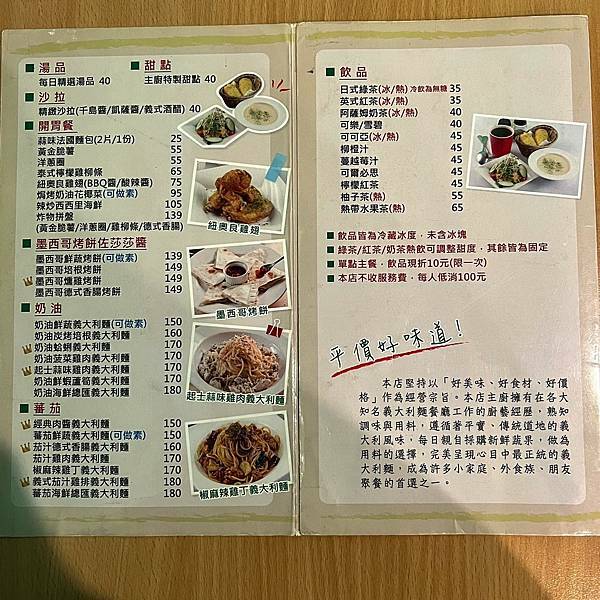 湯品
每日精選湯品 40
甜點
主廚特製甜點 40
沙拉
精緻沙拉(千島醬/凱薩醬/義式酒醋) 40
開胃餐
蒜味法國麵包(2片/1份) 25
黃金脆薯 55
洋蔥圈 55
泰式檸檬雞柳條 65
紐奧良雞翅(BBQ醬/酸辣醬) 75
焗烤奶油花椰菜(可做素) 95
辣炒西西里海鮮 105
炸物拼盤 139
(黃金脆薯/洋蔥圈/雞柳條/德式香腸)
紐奧良雞翅
墨西哥烤餅佐莎莎醬
墨西哥鮮蔬烤餅(可做素) 139
墨西哥培根烤餅 149
墨西哥燻雞烤餅 149
墨西哥德式香腸烤餅 149
墨西哥烤餅
奶油
奶油鮮蔬義大利麵(可做素) 150
奶油炭烤培根義大利麵 160
奶油蛤蜊義大利麵 170
奶油菠菜雞肉義大利麵 170
起士蒜味雞肉義大利麵 170
奶油鮮蝦蘆筍義大利麵 170
奶油海鮮總匯義大利麵 180
起士蒜味雞肉義大利麵
蕃茄
經典肉醬義大利麵 150
蕃茄鮮蔬義大利麵(可做素) 150
茄汁德式香腸義大利麵 160
茄汁雞肉義大利麵 170
椒麻辣雞丁義大利麵 170
義式茄汁雞排義大利麵 180
蕃茄海鮮總匯義大利麵 180
椒麻辣雞丁義大利麵
飲品
日式綠茶(冰/熱) 冷飲為無糖 35
英式紅茶(冰/熱) 35
阿薩姆奶茶(冰/熱) 40
可樂/雪碧 40
可可亞(冰/熱) 45
柳橙汁 45
蔓越莓汁 45
可爾必思 45
檸檬紅茶 45
柚子茶(熱) 55
熱帶水果茶(熱) 65
飲品皆為冷藏冰度，未含冰塊
綠茶/紅茶/奶茶熱飲可調整甜度，其餘皆為固定
單點主餐，飲品現折10元(限一次)
本店不收服務費，每人低消100元
平價好味道！
本店堅持以「好美味、好食材、好價
格」作為經營宗旨。本店主廚擁有在各大
知名義大利麵餐廳工作的廚藝經歷，熟知
調味與用料，遵循著平實、傳統道地的義
大利風味，每日親自採購新鮮蔬果，做為
用料的選擇，完美呈現心目中最正統的義
大利麵，成為許多小家庭、外食族、朋友
聚餐的首選之一。